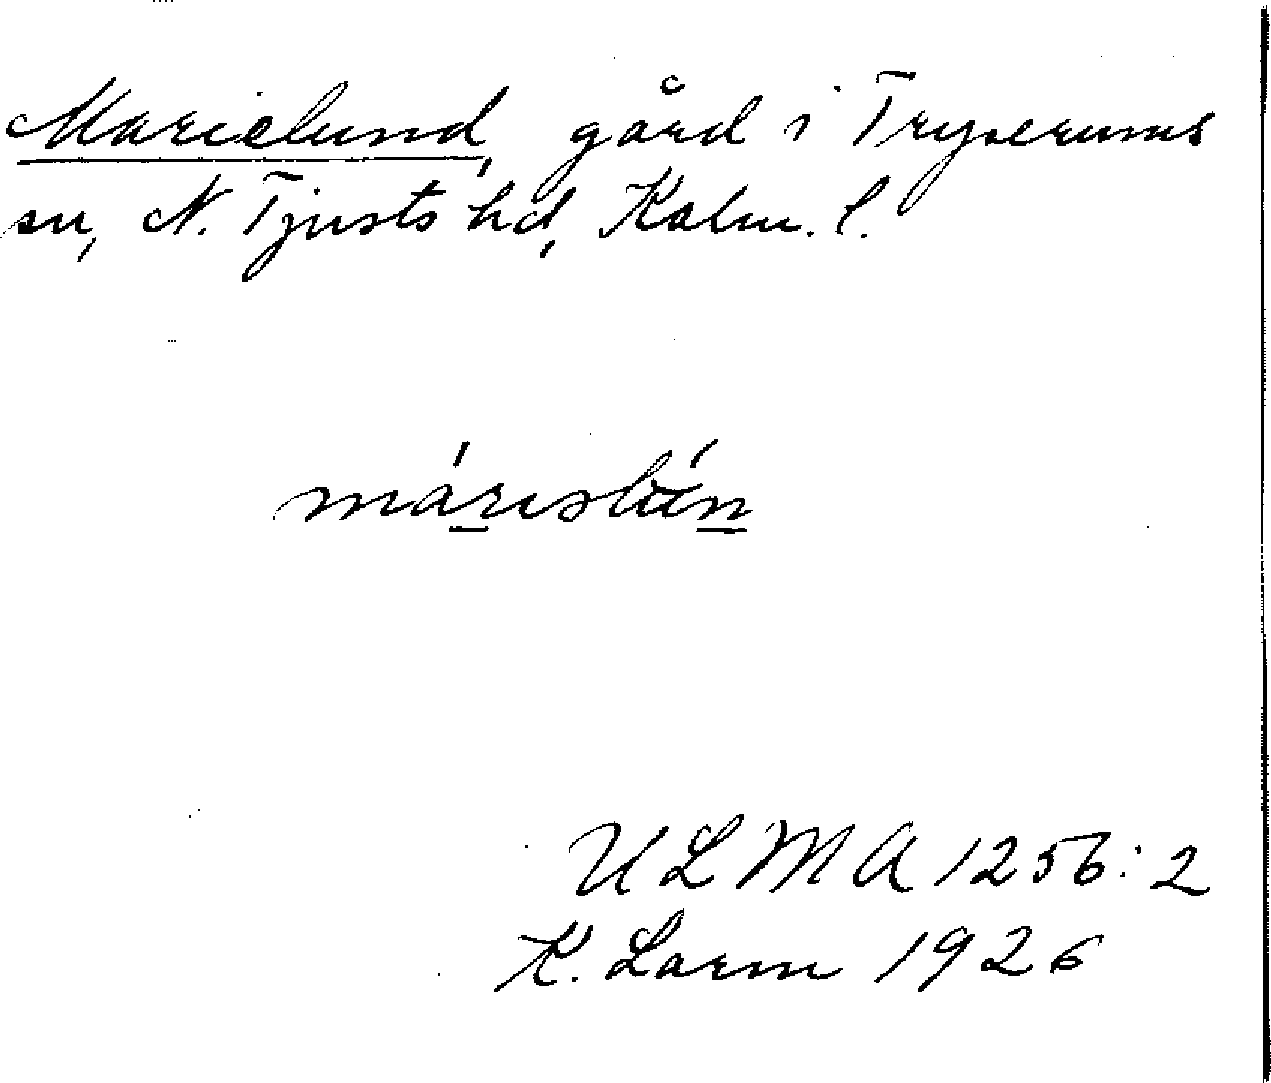 Marielund, gård i Tryserums
sn, N. Tjusts hd, Kalm. l.
márɩslún
ULMA 1256:2
K. Larm 1926